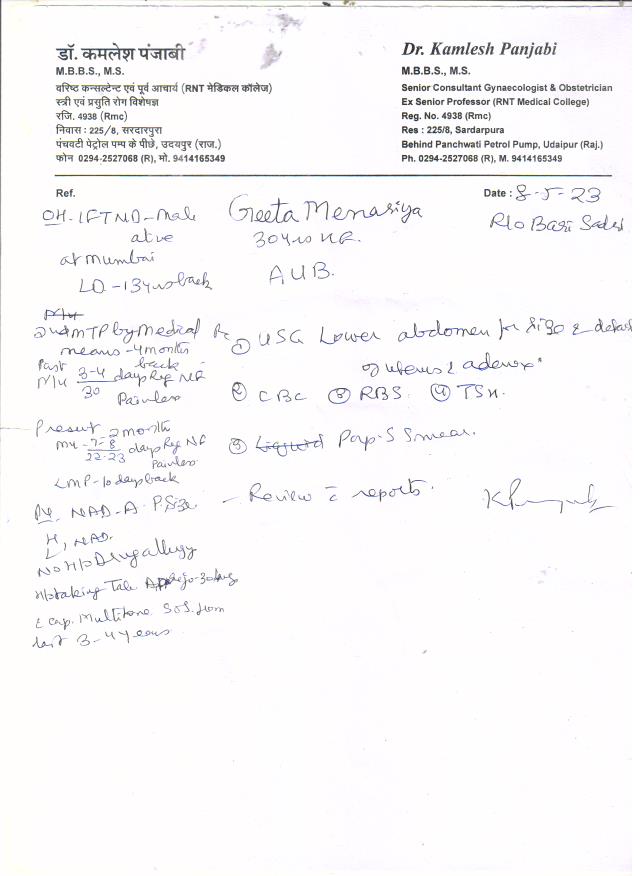 डॉ. कमलेश पंजाबी
M.B.B.S., M.S.
वरिष्ठ कन्सल्टेन्ट एवं पूर्व आचार्य (RNT मेडिकल कॉलेज)
स्त्री एवं प्रसुति रोग विशेषज्ञ
रजि. 4938 (Rmc)
निवास : 225/8, सरदारपुरा
पंचवटी पेट्रोल पम्प के पीछे, उदयपुर (राज.)
फोन 0294-2527068 (R), मो. 9414165349
Dr. Kamlesh Panjabi
M.B.B.S., M.S.
Senior Consultant Gynaecologist & Obstetrician
Ex Senior Professor (RNT Medical College)
Reg. No. 4938 (Rmc)
Res : 225/8, Sardarpura
Behind Panchwati Petrol Pump, Udaipur (Raj.)
Ph. 0294-2527068 (R), M. 9414165349
Ref.
Date : 8-5-23
Geeta Menariya
R/o Bari Sadri
30 yrs
AUB.
OH - 1FTND - Male
alive
at Mumbai
LD - 13 yrs back
2nd MTP by Medical
means - 4 month
back
Past
M/H 3-4/30 days Reg NF
Painless
Present 2 month
MH - 7-8/22-23 days Reg NF
Painless
LMP - 10 days back
NAD - A
H, NAD.
L
No H/o Drug allergy
H/o taking Tab
c cap. Multitone SOS from
last 3-4 years
① USG Lower abdomen for size & detail
of uterus & adenexa
② CBC ③ RBS ④ TSH.
⑤ Pap-S Smear.
- Review c reports.